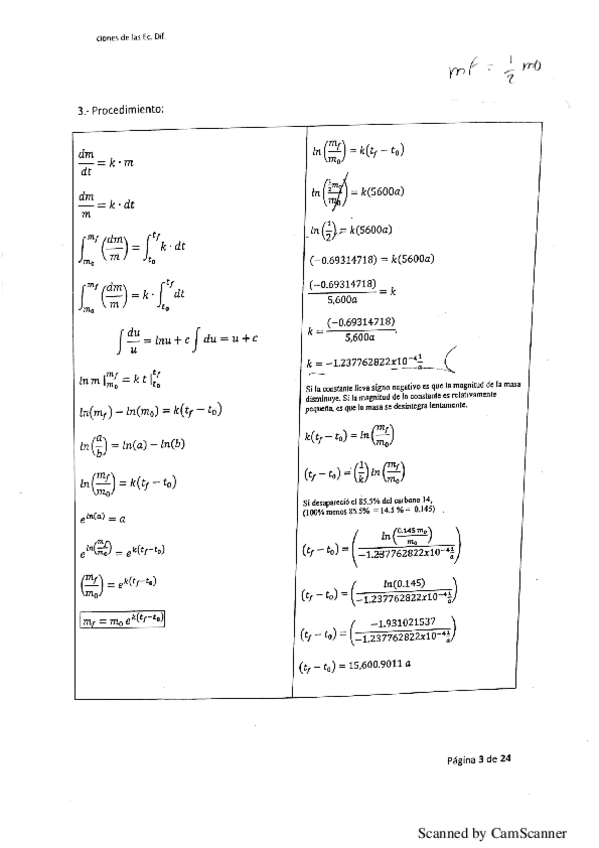 ciones de las Ec. Dif.
mf = 1/2 m0
3.- Procedimiento:
dm/dt = k · m
dm/m = k · dt
∫_{m₀}^{m_f} (dm/m) = ∫_{t₀}^{t_f} k · dt
∫_{m₀}^{m_f} (dm/m) = k · ∫_{t₀}^{t_f} dt
∫ du/u = lnu + c ∫ du = u + c
ln m |_{m₀}^{m_f} = k t |_{t₀}^{t_f}
ln(m_f) − ln(m₀) = k(t_f − t₀)
ln(a/b) = ln(a) − ln(b)
ln(m_f/m₀) = k(t_f − t₀)
e^{ln(a)} = a
e^{ln(m_f/m₀)} = e^{k(t_f−t₀)}
(m_f/m₀) = e^{k(t_f−t₀)}
m_f = m₀ e^{k(t_f−t₀)}
ln(m_f/m₀) = k(t_f − t₀)
ln(½m₀/m₀) = k(5600a)
ln(1/2) = k(5600a)
(−0.69314718) = k(5600a)
(−0.69314718)/5,600a = k
k = (−0.69314718)/5,600a
k = −1.237762822x10⁻⁴ 1/a
Si la constante lleva signo negativo es que la magnitud de la masa
disminuye. Si la magnitud de la constante es relativamente
pequeña, es que la masa se desintegra lentamente.
k(t_f − t₀) = ln(m_f/m₀)
(t_f − t₀) = (1/k) ln(m_f/m₀)
Si desapareció el 85.5% del carbono 14,
(100% menos 85.5% = 14.5 % = 0.145)
(t_f − t₀) = (ln(0.145 m₀/m₀)/−1.237762822x10⁻⁴ 1/a)
(t_f − t₀) = (ln(0.145)/−1.237762822x10⁻⁴ 1/a)
(t_f − t₀) = (−1.931021537/−1.237762822x10⁻⁴ 1/a)
(t_f − t₀) = 15,600.9011 a
Página 3 de 24
Scanned by CamScanner